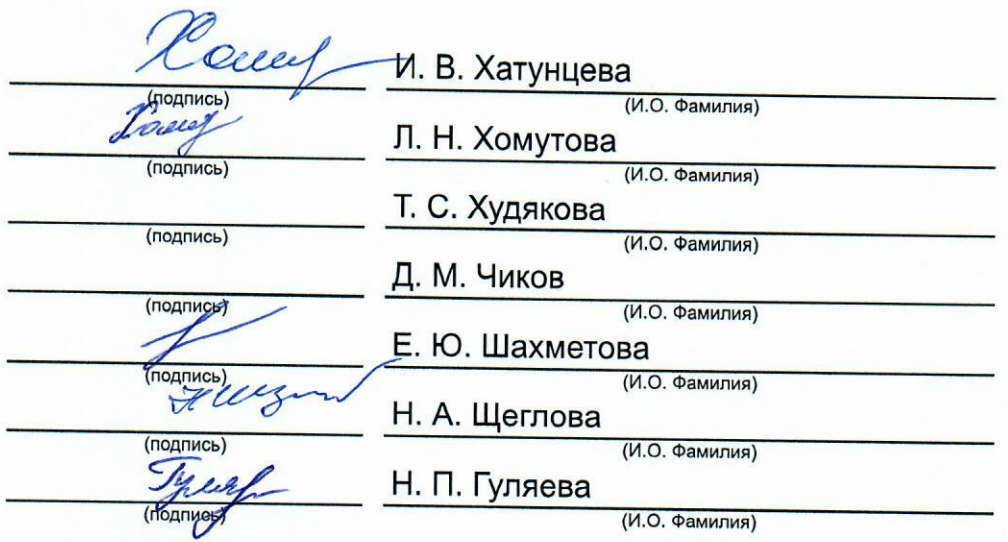 И. В. Хатунцева
(подпись) (И.О. Фамилия)
Л. Н. Хомутова
(подпись) (И.О. Фамилия)
Т. С. Худякова
(подпись) (И.О. Фамилия)
Д. М. Чиков
(подпись) (И.О. Фамилия)
Е. Ю. Шахметова
(подпись) (И.О. Фамилия)
Н. А. Щеглова
(подпись) (И.О. Фамилия)
Н. П. Гуляева
(подпись) (И.О. Фамилия)